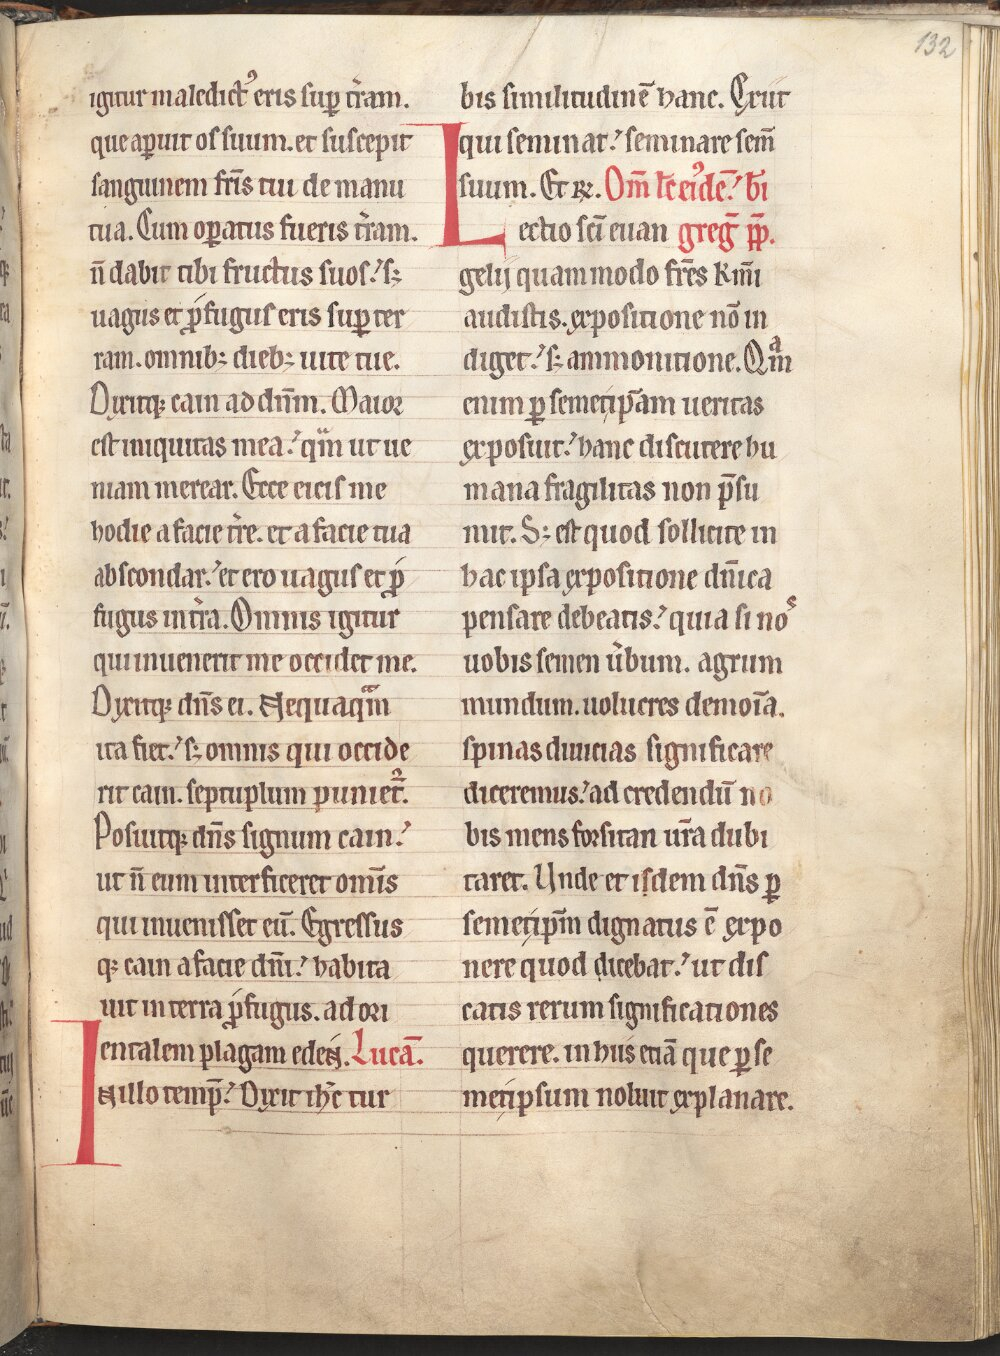 132
igitur maledictꝰ eris suꝑ t̄ram.
que aꝑuit os suum. et suscepit
sanguinem fr̄is tui de manu
tua. Cum oꝑatus fueris t̄ram.
n̄ dabit tibi fructus suos? sꝫ
uagus et p̄fugus eris suꝑ ter
ram. omnibꝫ diebꝫ uite tue.
Dixitqꝫ cain ad dn̄m. Maior
est iniquitas mea? qm̄ ut ue
niam merear. Ecce eicis me
hodie a facie t̄re. et a facie tua
abscondar? et ero uagus et p̄
fugus in t̄ra. Omnis igitur
qui inuenerit me occidet me.
Dixitqꝫ dn̄s ei. Nequaqᵃm
ita fiet? sꝫ omnis qui occide
rit cain. septuplum puniet̄.
Posuitqꝫ dn̄s signum cain?
ut n̄ eum interficeret omīs
qui inuenisset eū. Egressus
qꝫ cain a facie dn̄i? habita
uit in terra p̄fugus. ad ori
entalem plagam eden. Lucā.
IN illo temp̄? Dixit ih̄c tur
bis similitudinē hanc. Exiit
qui seminat? seminare sem̄
suum. Et R̃. Om̄ lc̄ eiꝰdē? bi̅
Lectio sc̄i euan greg̅ p̅p̅.
gelij quam modo fr̄es km̄i
audistis. expositione nō in
diget? sꝫ ammonitione. Qᵃm
enim ꝑ semetip̄am ueritas
exposuit? hanc discutere hu
mana fragilitas non p̄su
mit. Sꝫ est quod sollicite in
hac ipsa expositione dn̄ica
pensare debeatis? quia si noˢ
uobis semen ūbum. agrum
mundum. uolucres demoīa.
spinas diuicias significare
diceremus? ad credendū no
bis mens forsitan ur̄a dubi
taret. Unde et isdem dn̄s ꝑ
semetip̄m dignatus ē expo
nere quod dicebat? ut dis
catis rerum significationes
querere. in his etiā que ꝑ se
metipsum noluit explanare.